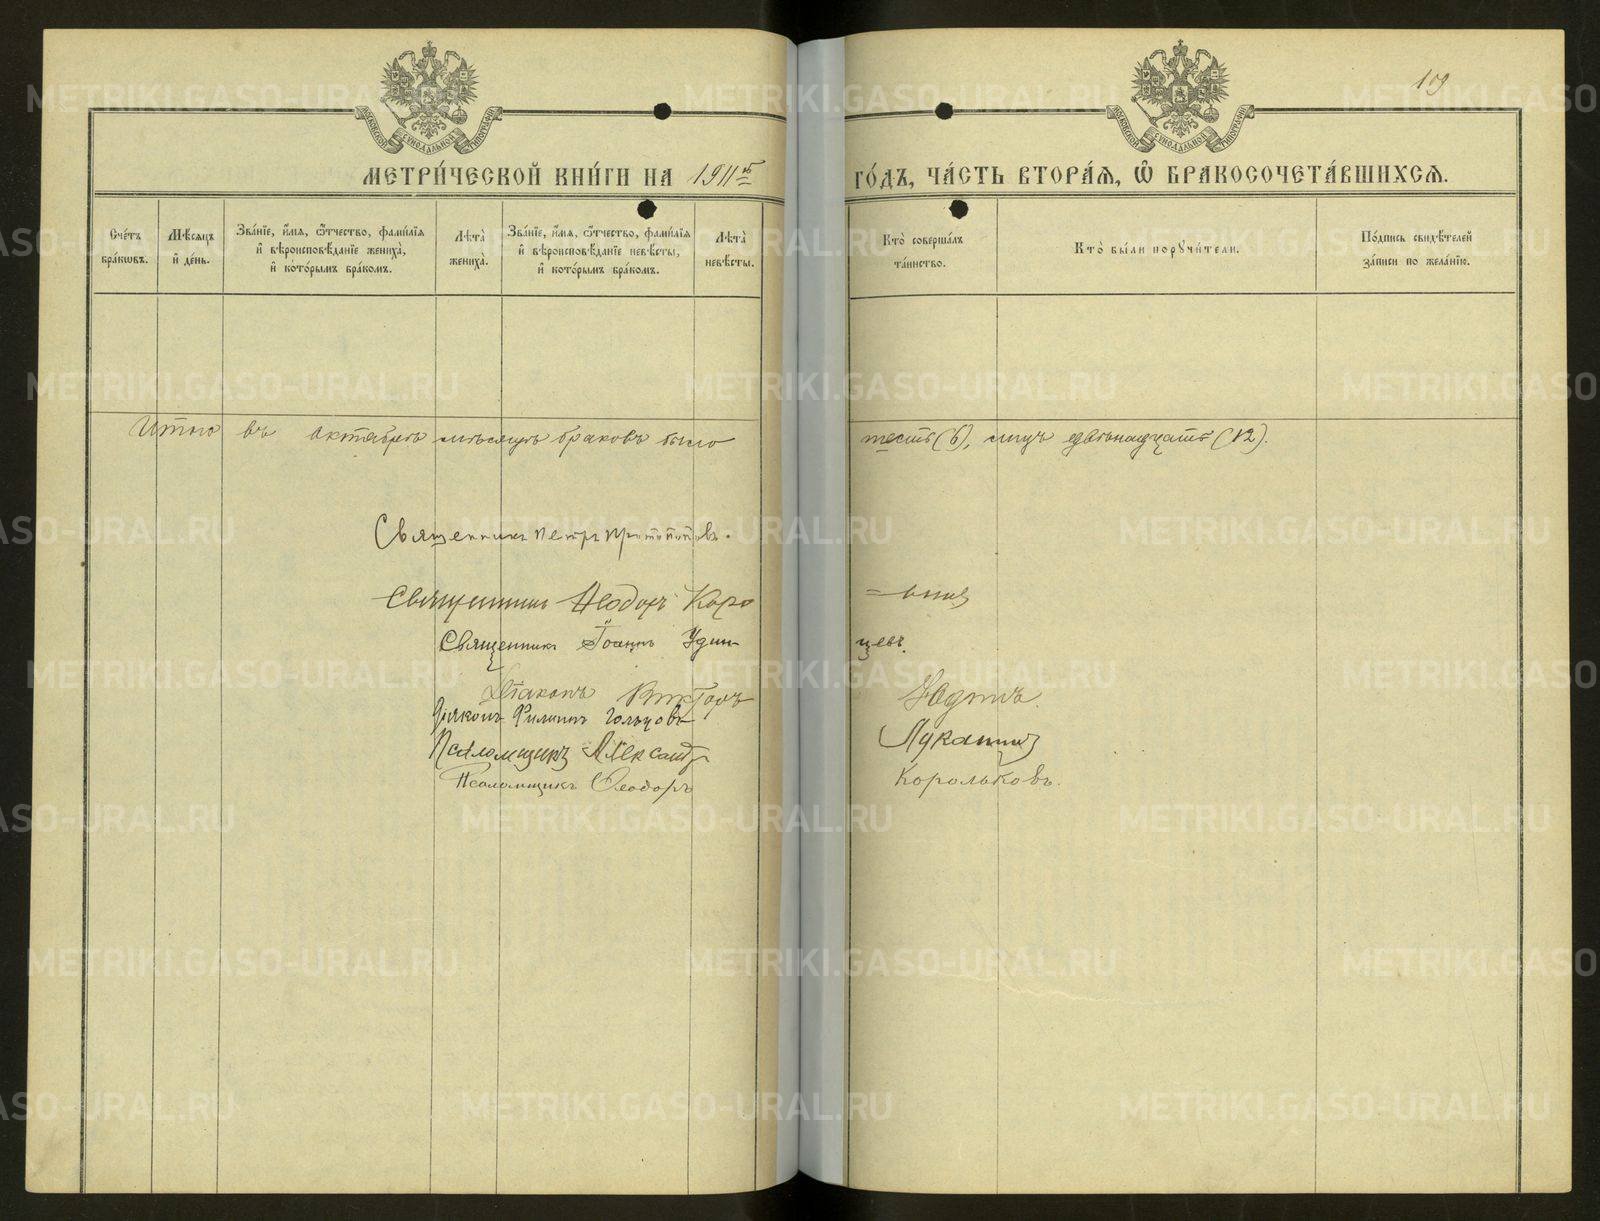 19
МЕТРИ́ЧЕСКОЙ КНИ́ГИ НА 1911й ГО́ДЪ, ЧА́СТЬ ВТОРА́Я, Ѡ БРАКОСОЧЕТА́ВШИХСЯ.
Сче́тъ бра́ковъ.
Мѣ́сяцъ и҆ де́нь.
Зва́нїе, и҆́мя, ѻ҆́тчество, фами́лїя и҆ вѣроисповѣ́данїе жениха̀, и҆ кото́рымъ бра́комъ.
Лѣ́та жениха̀.
Зва́нїе, и҆́мя, ѻ҆́тчество, фами́лїя и҆ вѣроисповѣ́данїе невѣ́сты, и҆ кото́рымъ бра́комъ.
Лѣ́та невѣ́сты.
Кто̀ соверша́лъ та́инство.
Кто̀ бы́ли поручи́тели.
По́дпись свидѣ́телей за́писи по жела́нїю.
Итого въ октябрѣ мѣсяцѣ браковъ было шесть (6), лицъ двѣнадцать (12).
Священникъ Петръ Протопоповъ.
Священникъ Ѳеодоръ Коро=
Священникъ Іоаннъ Удин-цевъ.
Діаконъ Викторъ
Діаконъ Филиппъ Гольцовъ
Псаломщикъ Александръ Луканинъ
Псаломщикъ Ѳеодоръ Корольковъ.
METRIKI.GASO-URAL.RU